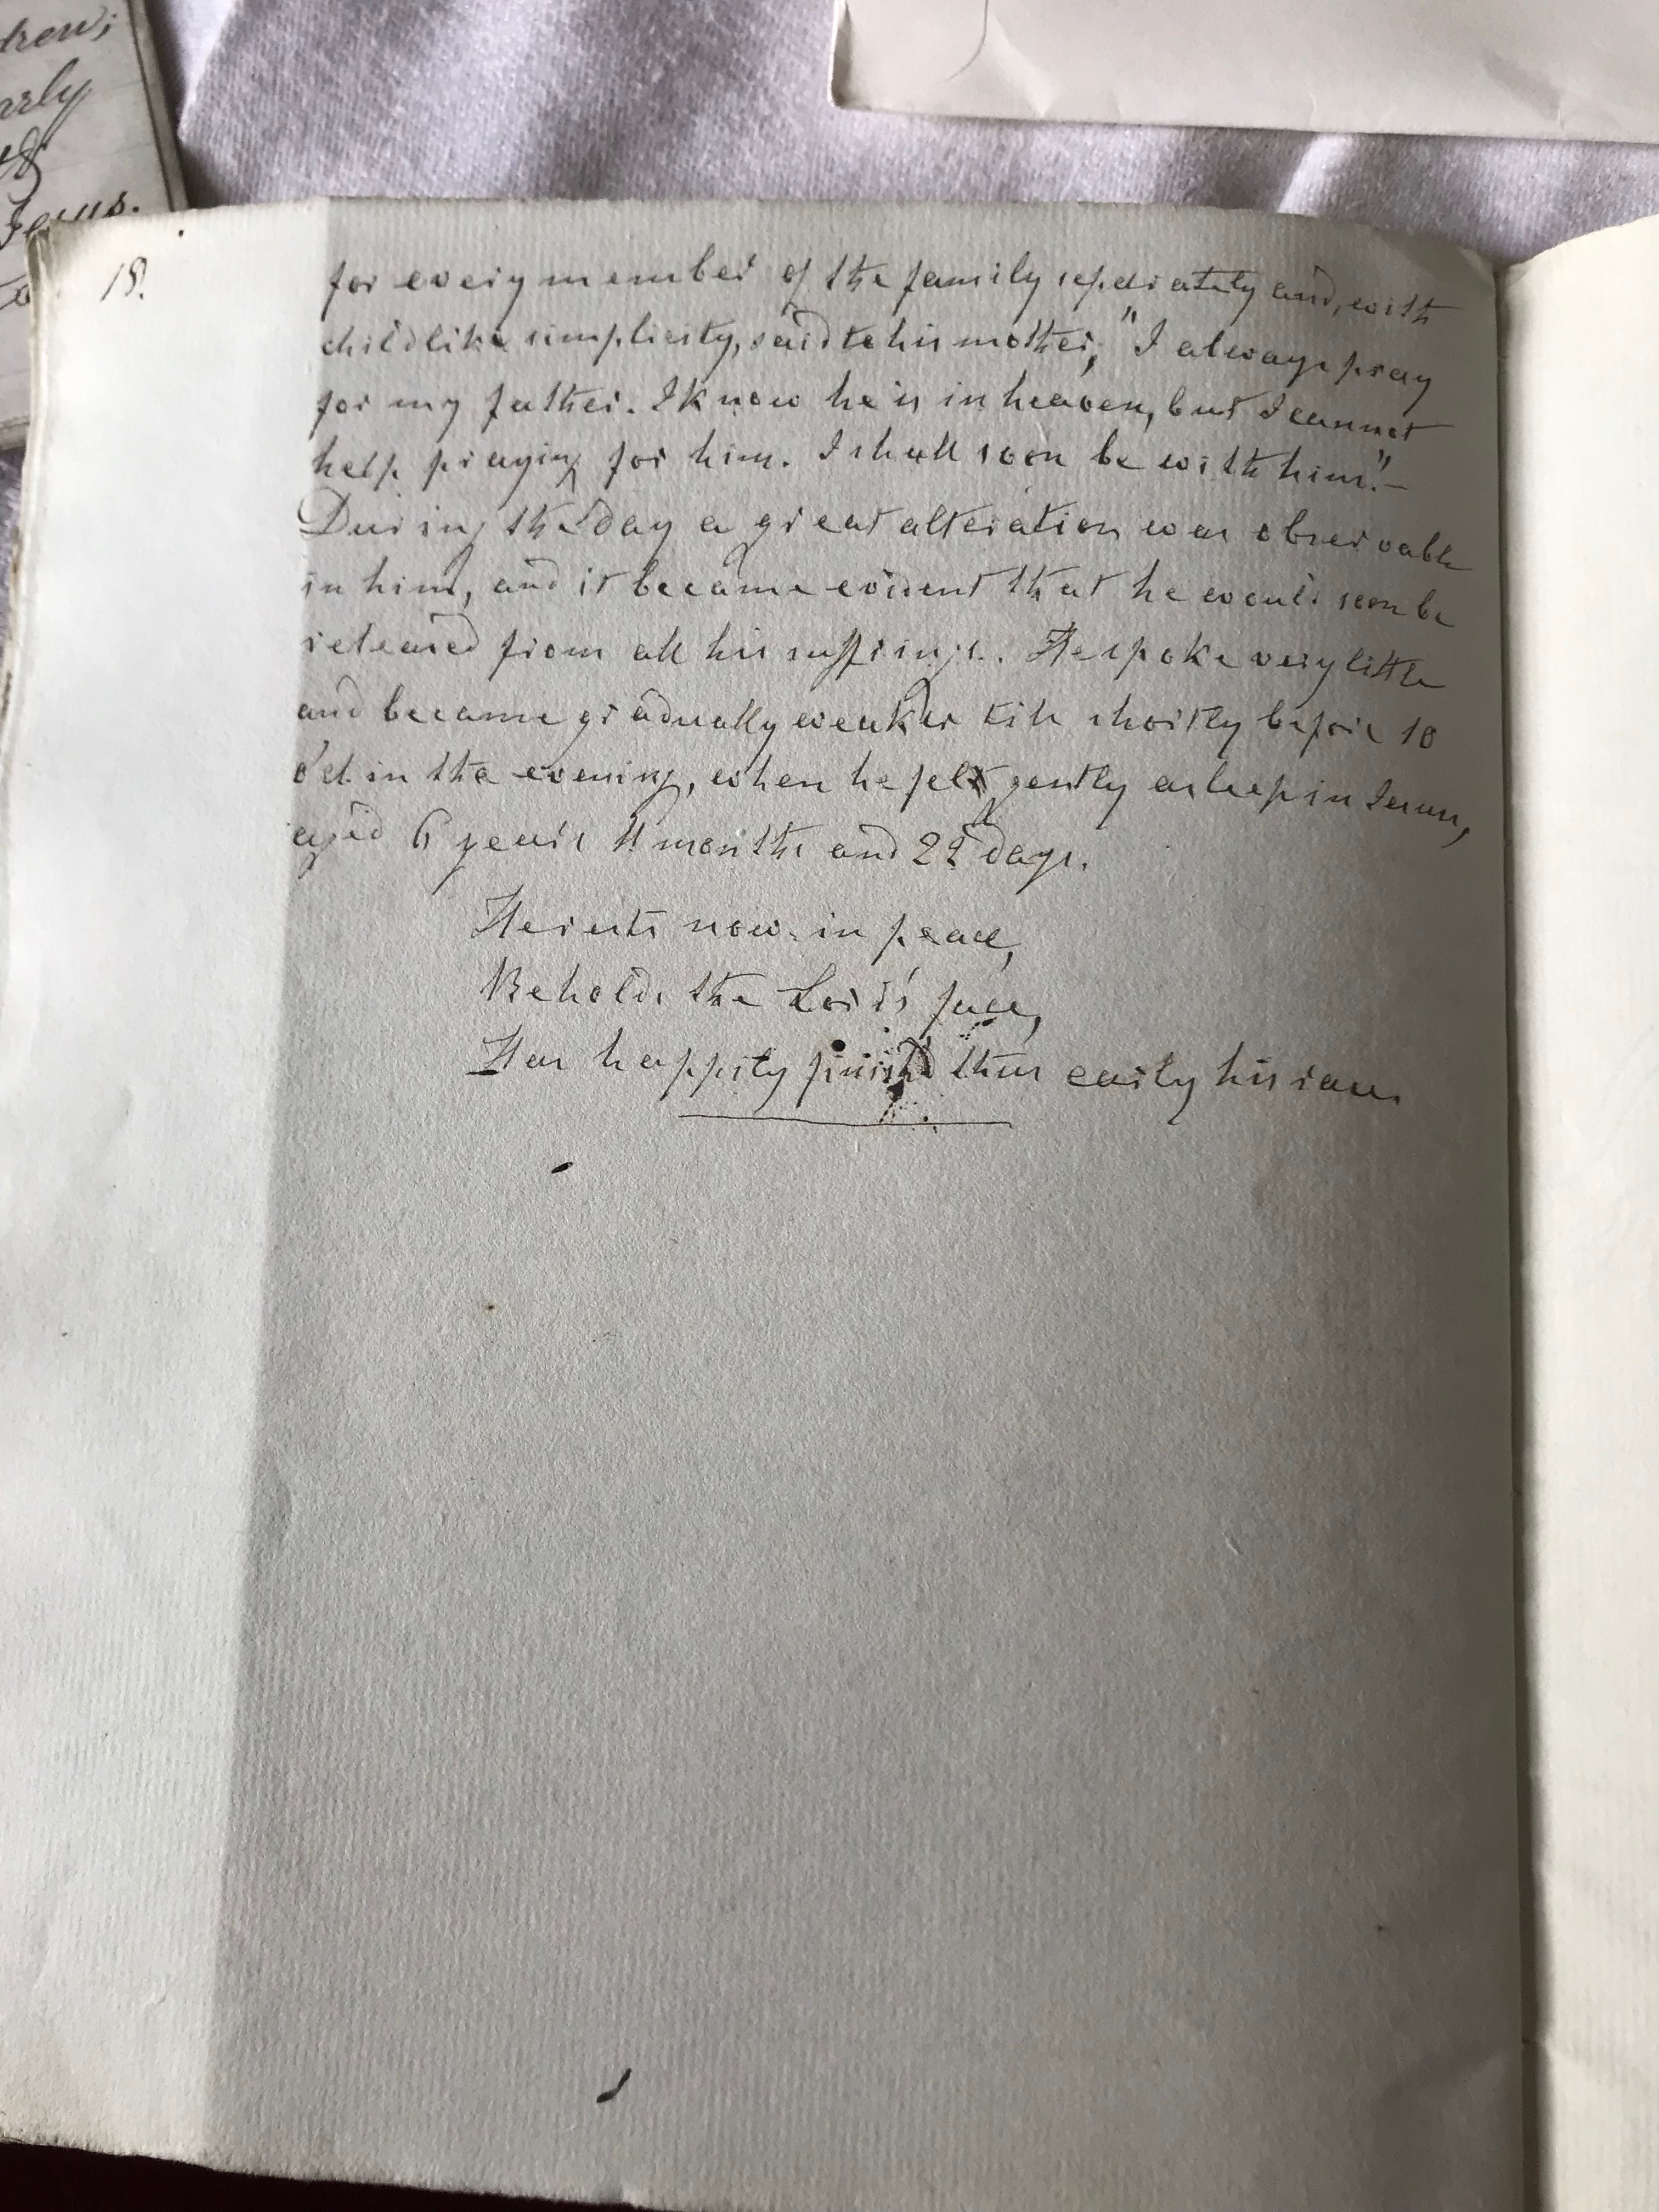 drew;
arly
Jesus.
18.
for every member of the family seperately and, with
childlike simplicity, said to his mother, "I always pray
for my father. I know he is in heaven, but I cannot
help praying for him. I shall soon be with him."—
During the day a great alteration was observable
in him, and it became evident that he would soon be
released from all his suffrings. He spoke very little
and became gradually weaker till shortly before 10
o'cl. in the evening, when he fell gently asleep in Jesus,
aged 6 years 11 months and 22 days.
He rests now in peace,
Beholds the Lord's face,
Has happily finish'd thus early his race.